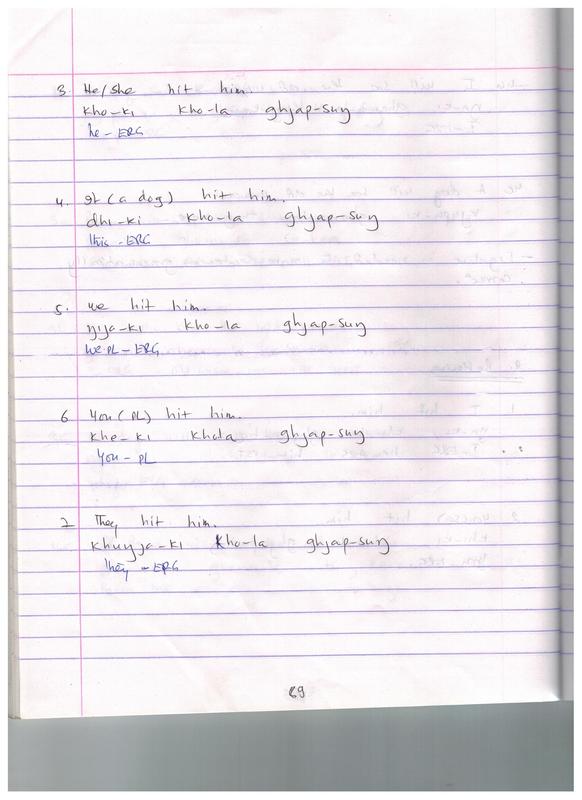 3. He/she hit him.
kho-ki kho-la ghjap-suŋ
he-ERG
4. It (a dog) hit him.
dhi-ki kho-la ghjap-suŋ
this-ERG
5. we hit him.
ŋja-ki kho-la ghjap-suŋ
we.PL-ERG
6 You (PL) hit him.
khe-ki khola ghjap-suŋ
You-PL
7 They hit him.
khuŋja-ki kho-la ghjap-suŋ
they-ERG
69